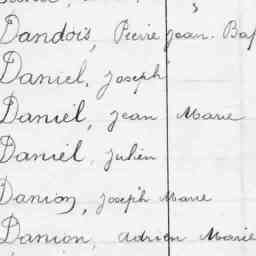 Dandois, Pierre Jean. Bap
Daniel, Joseph
Daniel, Jean Marie
Daniel, Julien
Danion, Joseph Marie
Danion, Adrien Marie